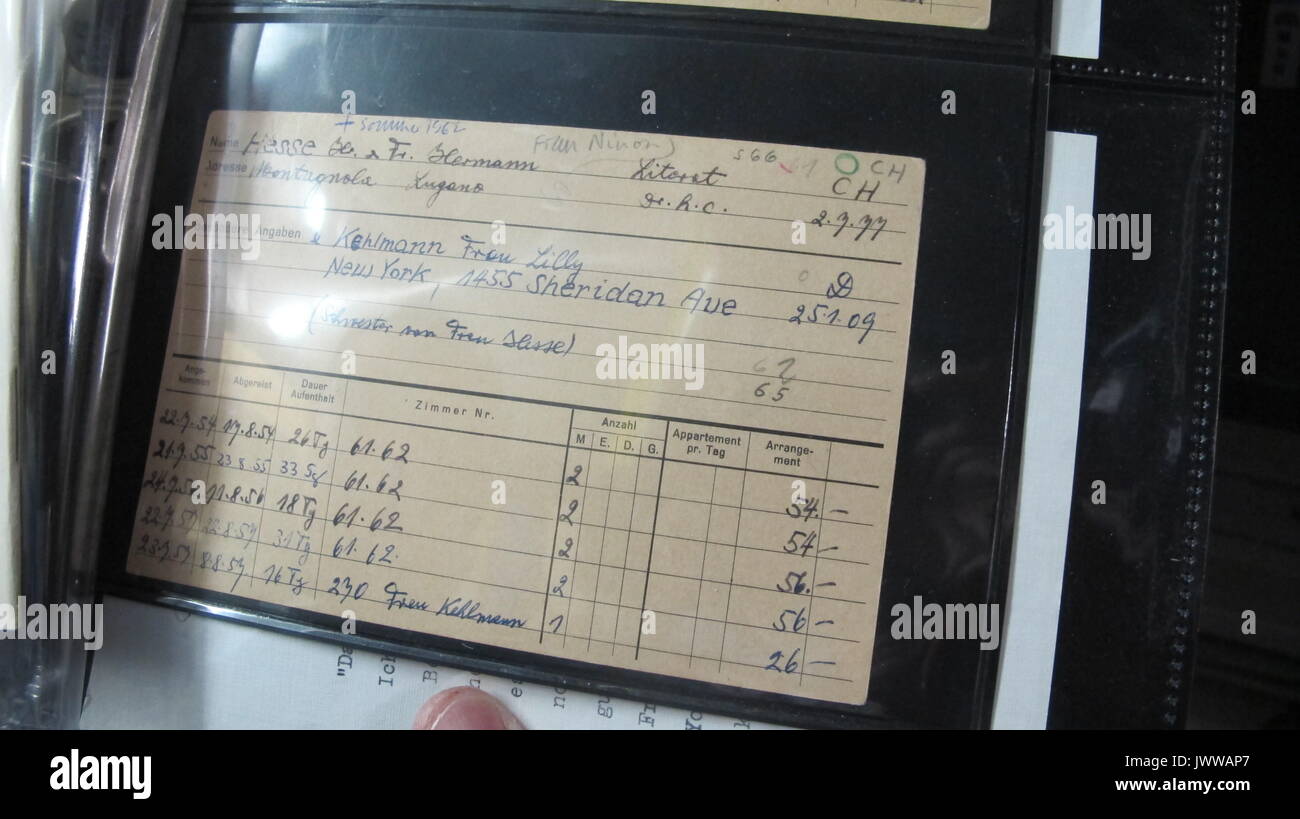 + Sommer 1962
Frau Ninon
S66 CH
Name Hesse Hr. & Fr. Hermann Literat CH
Adresse Montagnola Lugano Dr. h. c. 2.7.77
Angaben & Kehlmann Frau Lilly D
New York, 1455 Sheridan Ave 25.1.09
(Schwester von Frau Hesse)
62
65
Ange-kommen Abgereist Dauer Aufenthalt Zimmer Nr. Anzahl M E. D. G. Appartement pr. Tag Arrange-ment
22.7.54 17.8.54 26 Tg 61.62 2 54 –
21.7.55 23 8 55 33 Tg 61.62 2 54 –
24.7.56 11.8.56 18 Tg 61.62 2 56. –
22.7.57 22.8.57 31 Tg 61.62. 2 56 –
23.7.57 8.8.57 16 Tg 230 Frau Kehlmann 1 26 –
"Da
Ic
no
gu
Yo
k
alamy
alamy stock photo
JWWAP7
www.alamy.com